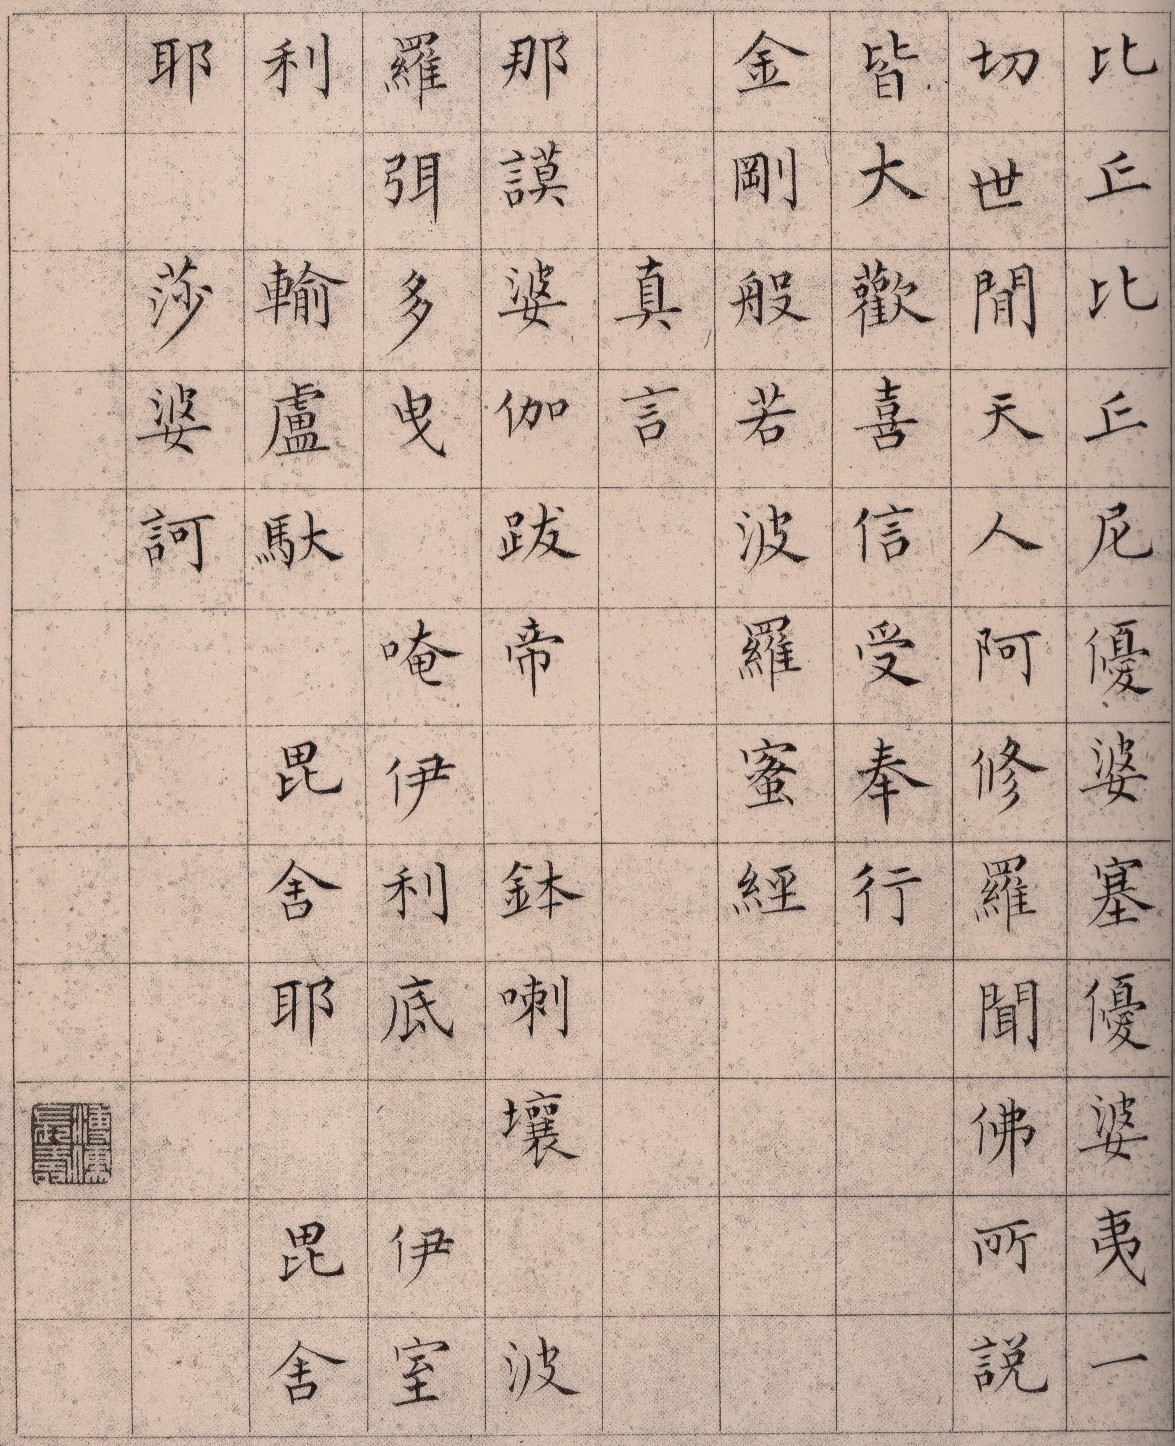 比丘比丘尼優婆塞優婆夷一
切世間天人阿修羅聞佛所說
皆大歡喜信受奉行
金剛般若波羅蜜經
真言
那謨婆伽跋帝 鉢喇壤 波
羅弭多曳 唵伊利底 伊室
利 輸盧馱 毘舍耶 毘舍
耶 莎婆訶